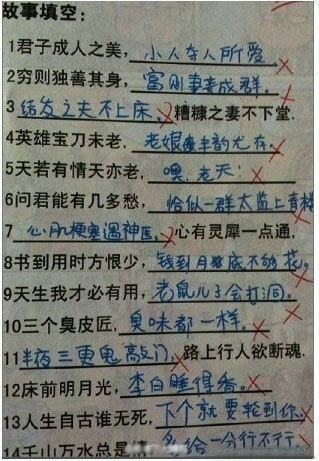 故事填空:
1君子成人之美,小人夺人所爱
2穷则独善其身,富则妻妾成群.
3结发之夫不上床,糟糠之妻不下堂.
4英雄宝刀未老,老娘丰韵尤存.
5天若有情天亦老,噢,老天:
6问君能有几多愁,恰似一群太监上青楼
7心肌梗塞遇神医,心有灵犀一点通,
8书到用时方恨少,钱到月底不够花。
9天生我才必有用,老鼠儿子会打洞。
10三个臭皮匠,臭味都一样。
11半夜三更鬼敲门,路上行人欲断魂.
12床前明月光,李白睡得香。
13人生自古谁无死,下个就要轮到你.
14千山万水总是 多给一分行不行.